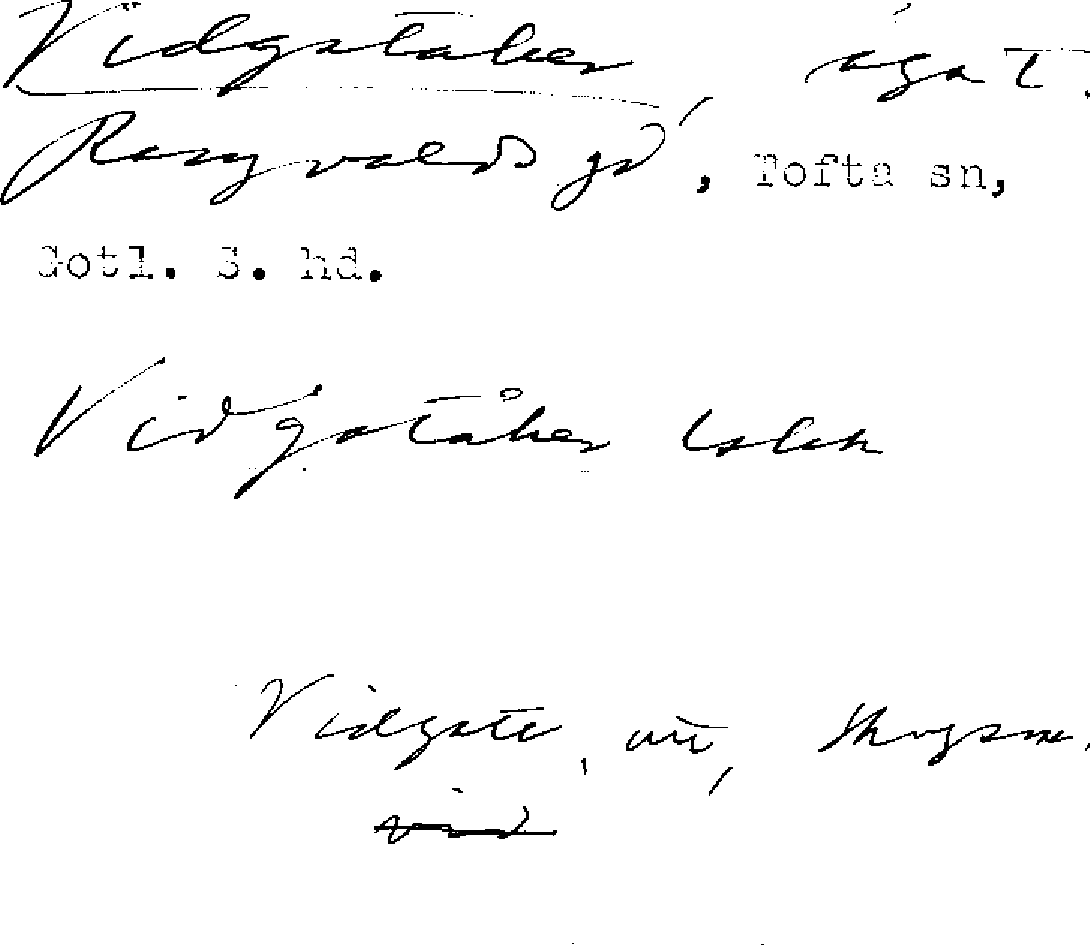 Vidgståker, äga t.
Ragnvalds gd, Tofta sn,
Gotl. S. hd.
Vidgståker Lskk
Vidgste, utt, Skogsm.
vid